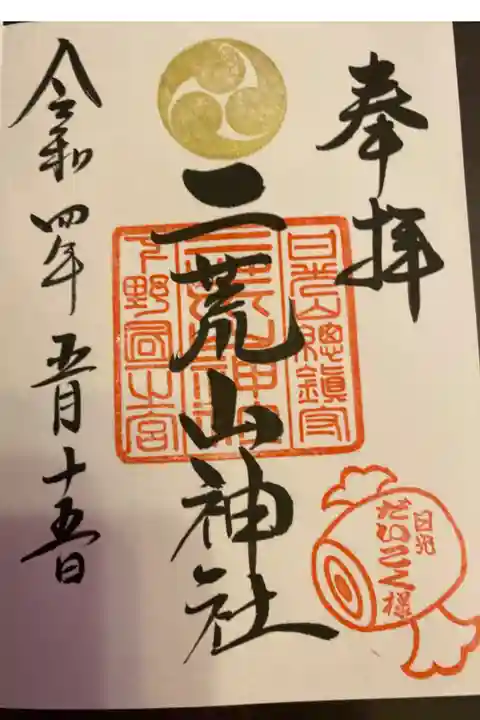 奉拝
二荒山神社
日光山總鎮守
二荒山神社
下野國一之宮
日光
だいこく様
令和四年五月十五日